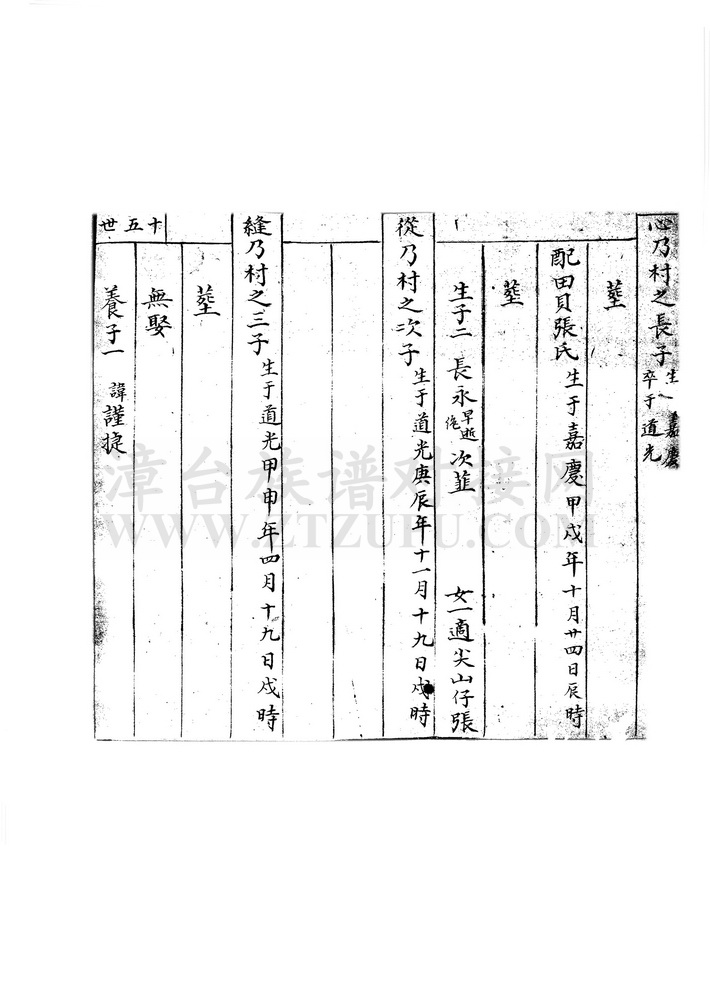 心乃村之長子 生 嘉慶 卒于 道光
塟
配田貝張氏 生于嘉慶甲戍年十月廿四日辰時
塟
生于二 長永 早逝 次韮 女一適尖山仔張
從乃村之次子 生于道光庚辰年十一月十九日戍時
縫乃村之三子 生于道光甲申年四月十九日戍時
塟
無娶
養子一 諱謹捷
十五世
漳台族谱对接网
WWW.ZTZUPU.COM